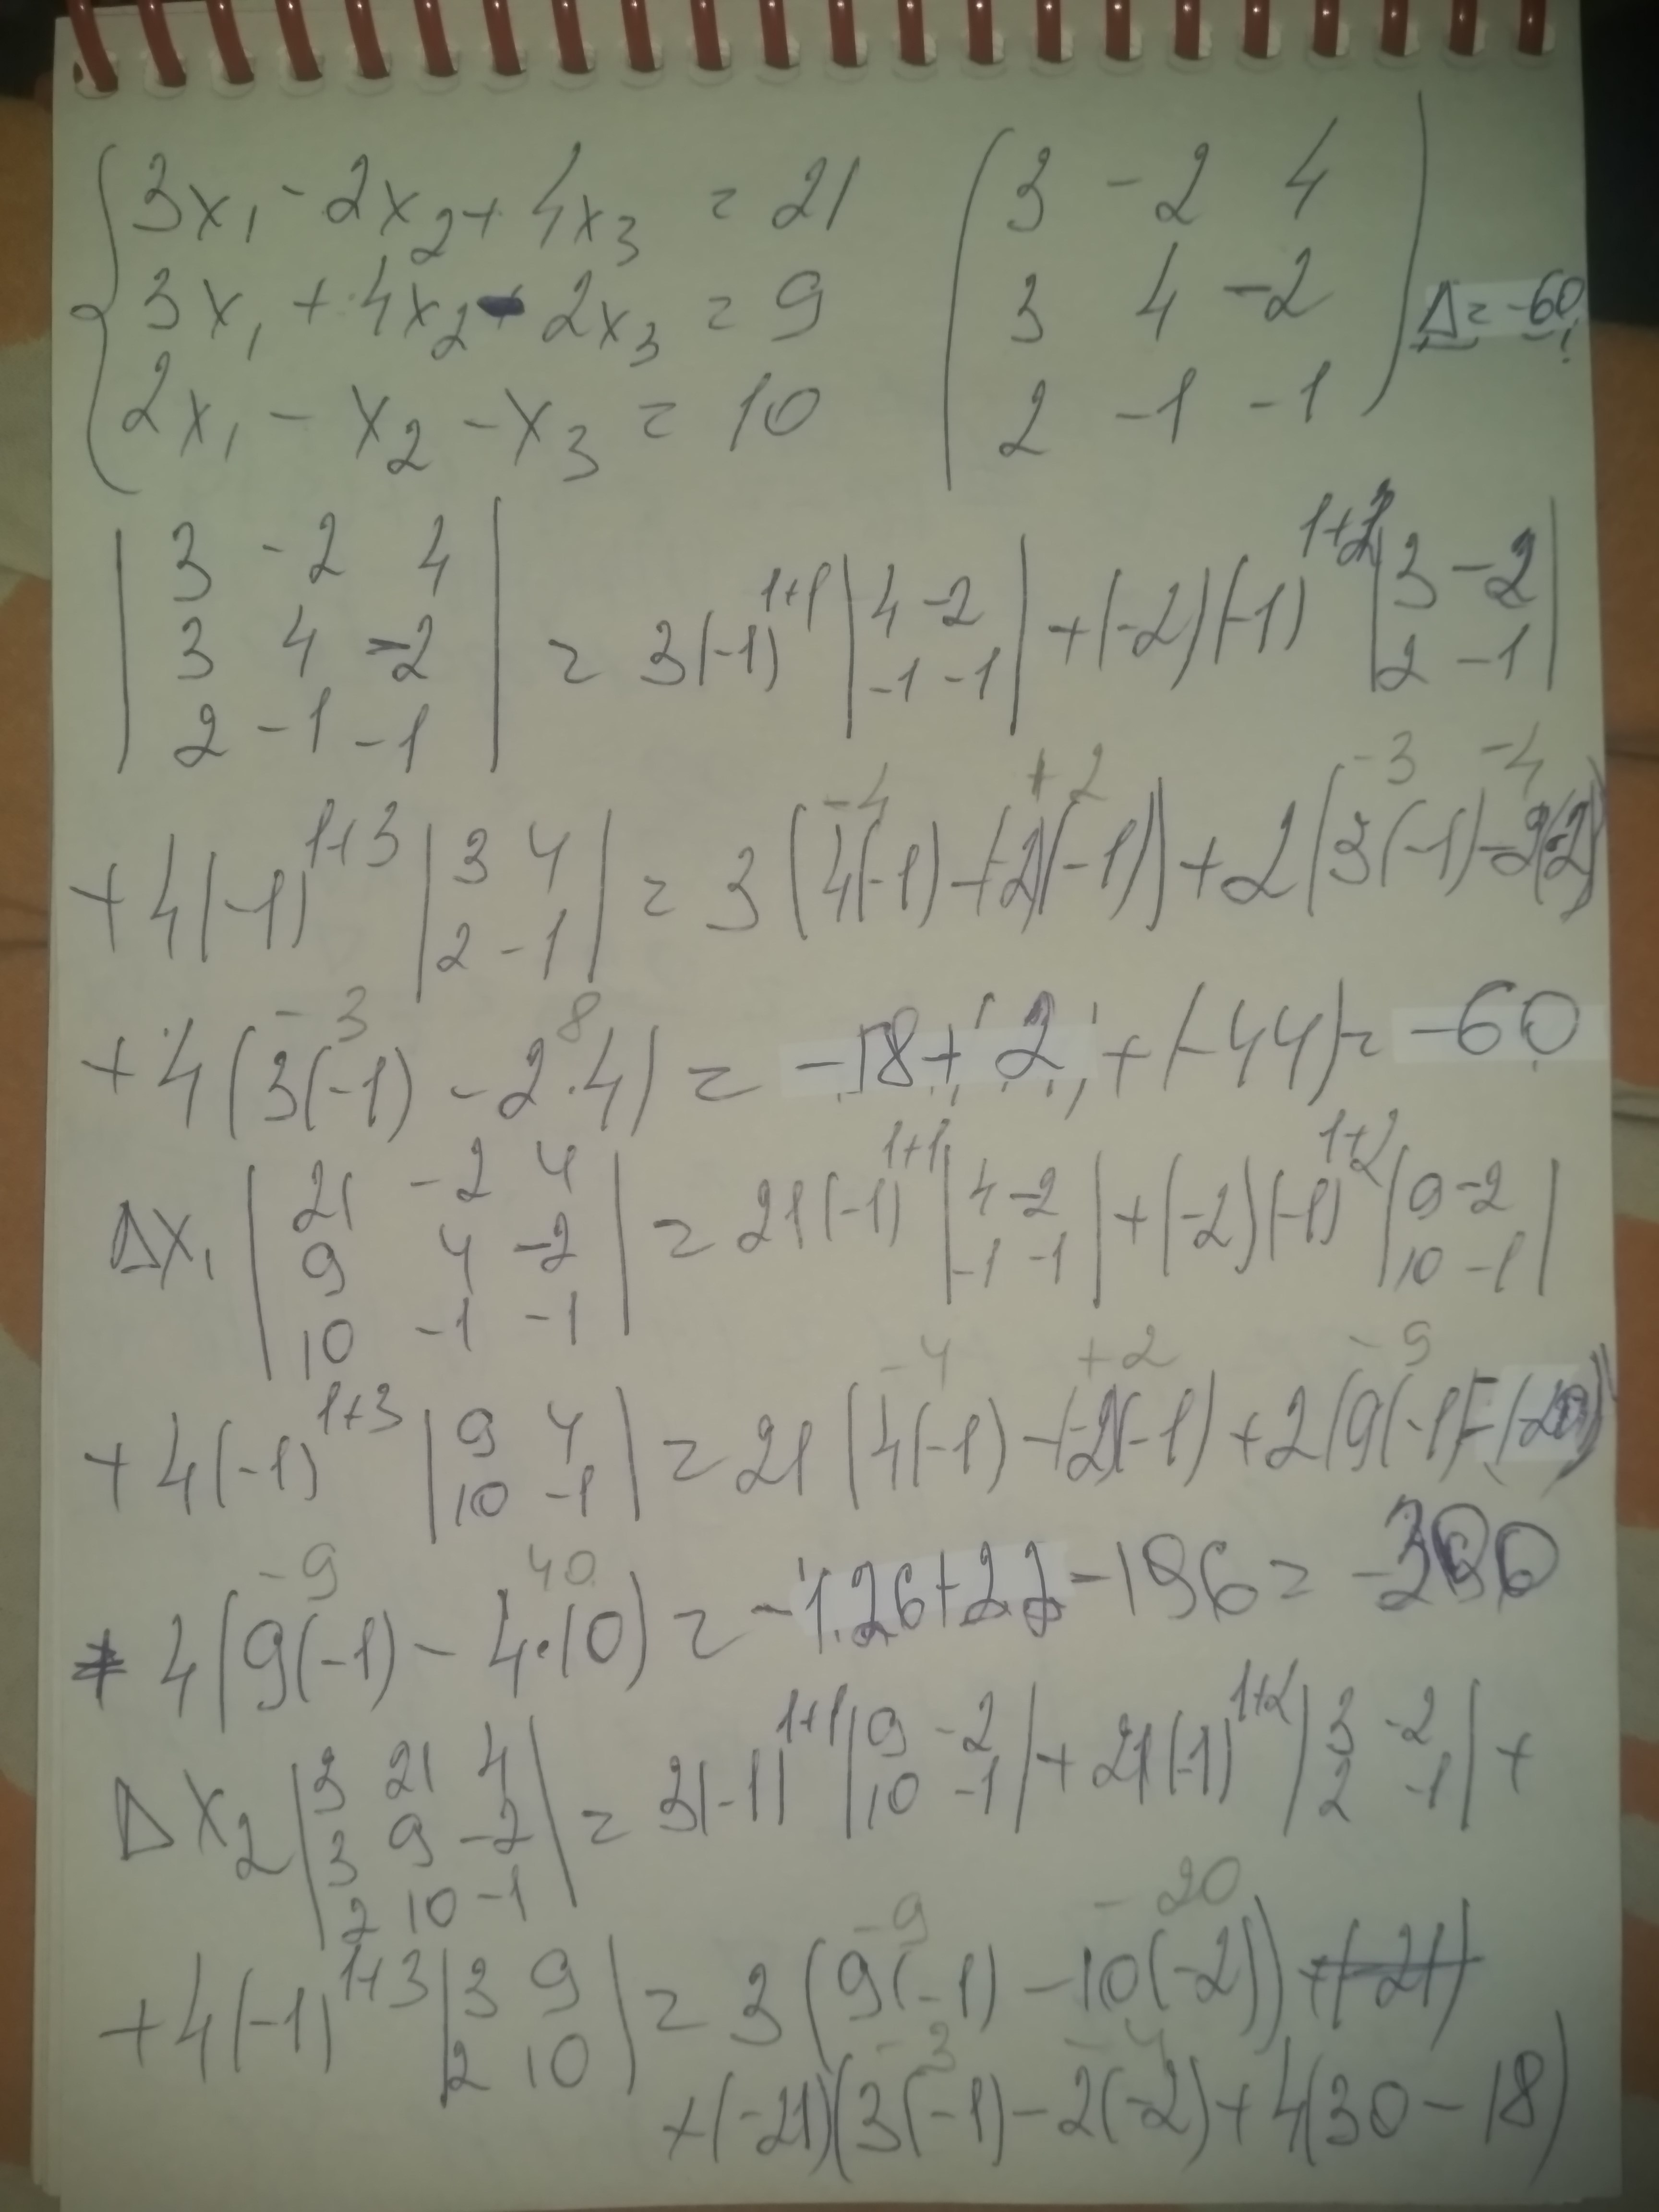 3x₁ - 2x₂ + 4x₃ = 21
3x₁ + 4x₂ - 2x₃ = 9
2x₁ - x₂ - x₃ = 10
3 -2 4
3 4 -2
2 -1 -1
Δ = -60
|3 -2 4|
|3 4 -2| = 3(-1)¹⁺¹ |4 -2; -1 -1| + (-2)(-1)¹⁺² |3 -2; 2 -1|
|2 -1 -1|
-4 +2 -3 -4
+ 4(-1)¹⁺³ |3 4; 2 -1| = 3(4(-1) - (-2)(-1)) + 2(3(-1) - 2(-2))
-3 8
+ 4(3(-1) - 2·4) = -18 + 2 + (-44) = -60
Δx₁ |21 -2 4; 9 4 -2; 10 -1 -1| = 21(-1)¹⁺¹ |4 -2; -1 -1| + (-2)(-1)¹⁺² |9 -2; 10 -1|
-4 +2 -9
+ 4(-1)¹⁺³ |9 4; 10 -1| = 21(4(-1) - (-2)(-1) + 2(9(-1) - (-20))
-9 40
+ 4(9(-1) - 4·10) = -126 + 22 - 196 = -300
Δx₂ |3 21 4; 3 9 -2; 2 10 -1| = 3(-1)¹⁺¹ |9 -2; 10 -1| + 21(-1)¹⁺² |3 -2; 2 -1| +
-9 -20
+ 4(-1)¹⁺³ |3 9; 2 10| = 3(9(-1) - 10(-2)) +(-21)
-3 -4
+ (-21)(3(-1) - 2(-2) + 4(30 - 18)